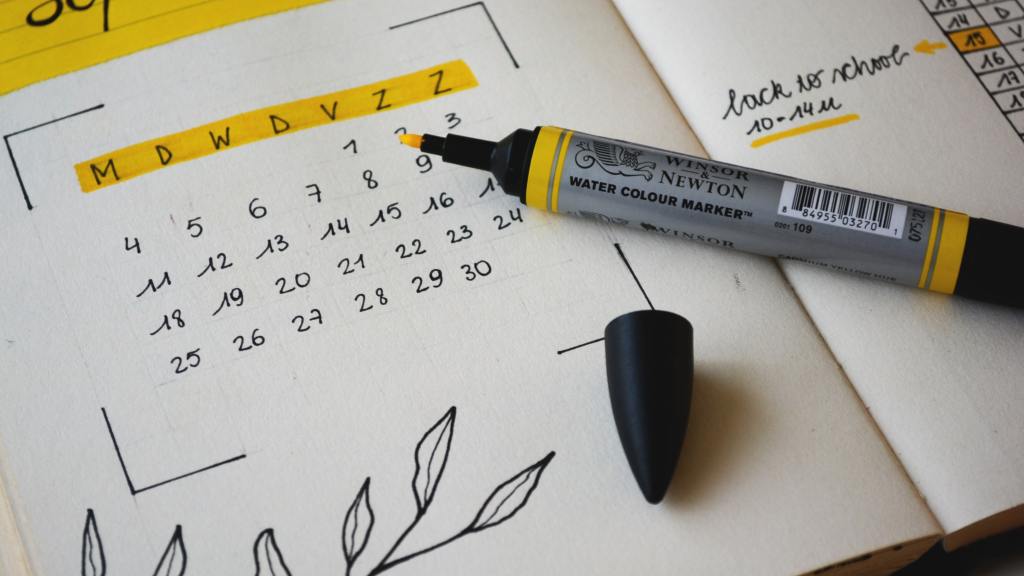 Sep
M D W D V Z Z
1 2 3
4 5 6 7 8 9
11 12 13 14 15 16
18 19 20 21 22 23 24
25 26 27 28 29 30
WINSOR
&
NEWTON
WATER COLOUR MARKER™
8 84955 03270 1
0201 109
WINSOR
CADMIUM YELLOW HUE
back to school
10-14u
14 D
15 V
16
17